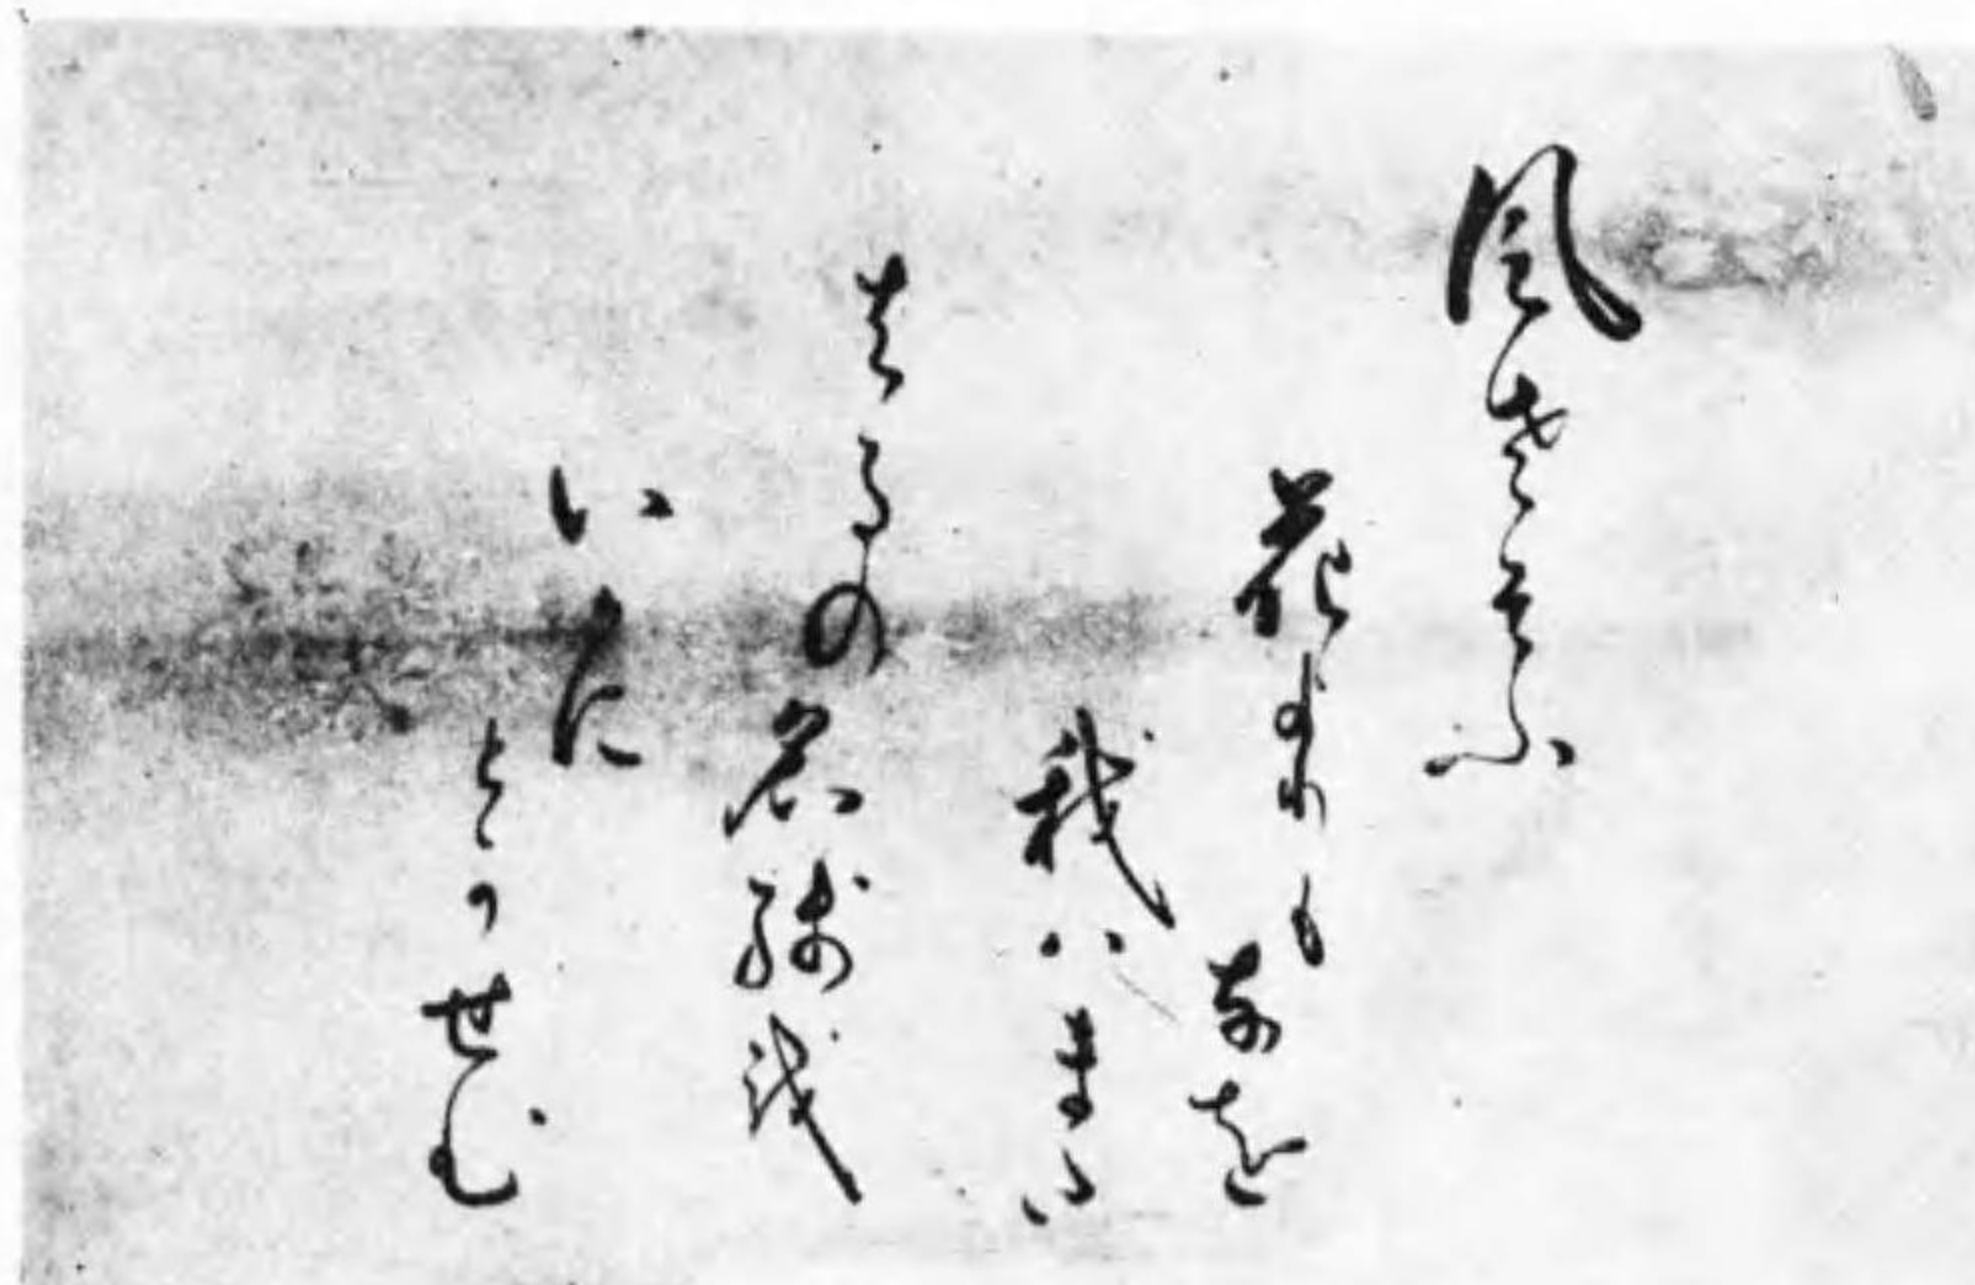 風さそふ
花よりも
なを
我ハまた
はるの名残を
いかに
とかせむ